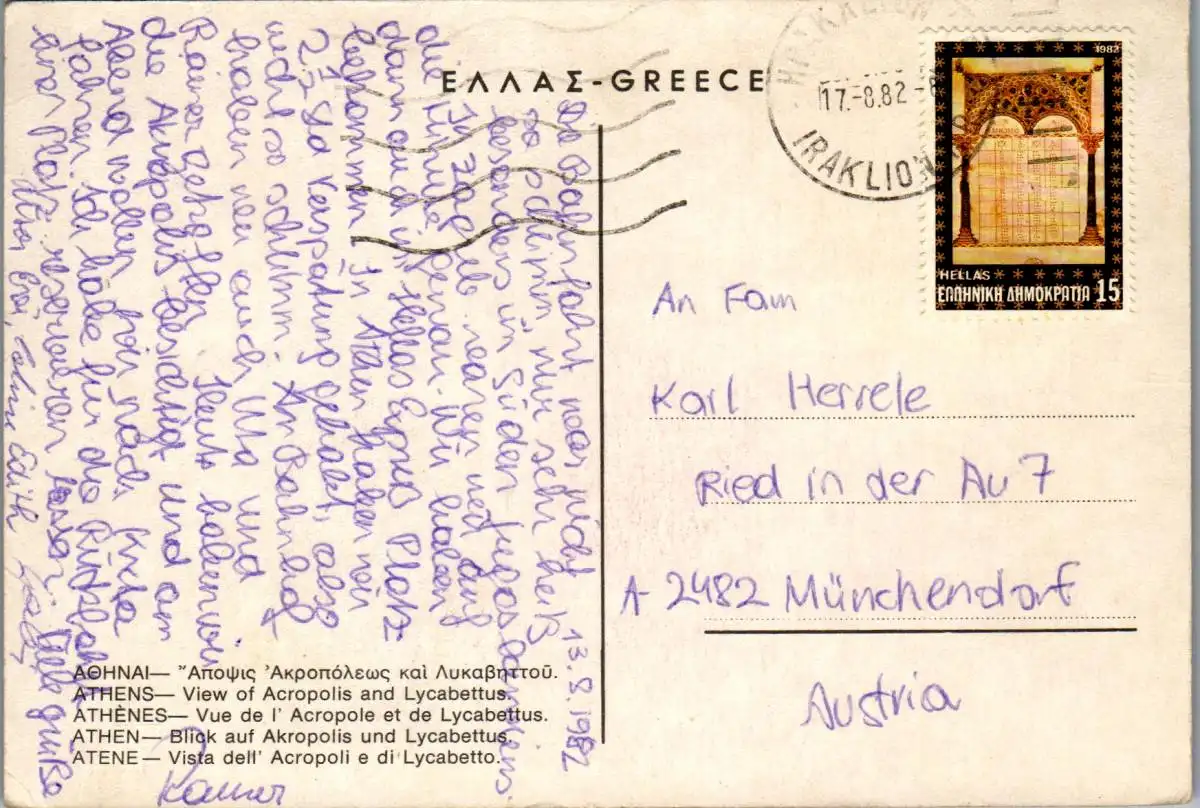 ΕΛΛΑΣ-GREECE
IRAKLION
17.-8.82-8
IRAKLION
1982
HELLAS
ΕΛΛΗΝΙΚΗ ΔΗΜΟΚΡΑΤΙΑ 15
13.8.1982
Die Bahnfahrt war nicht
so schlimm, nur sehr heiß
besonders im Süden Jugoslawiens.
In Zagreb waren wir auf
die Minute genau. Wir haben
dann auch im Hellas Express Platz
bekommen. In Athen haben wir
2½ Std Verspätung gehabt, also
nicht so schlimm. Am Bahnhof
haben wir auch Uta und
Rainer getroffen. Heute haben wir
die Akropolis besichtigt und am
Abend wollen wir nach Kreta
fahren. Ich habe für die Rückfahrt
einen Platz reservieren lassen. Viele Grüße
Edith
Rainer
An Fam
Karl Herrele
Ried in der Au 7
A-2482 Münchendorf
Austria
ΑΘΗΝΑΙ— Ἄποψις Ἀκροπόλεως καὶ Λυκαβηττοῦ.
ATHENS— View of Acropolis and Lycabettus.
ATHÈNES— Vue de l' Acropole et de Lycabettus.
ATHEN— Blick auf Akropolis und Lycabettus.
ATENE— Vista dell' Acropoli e di Lycabetto.